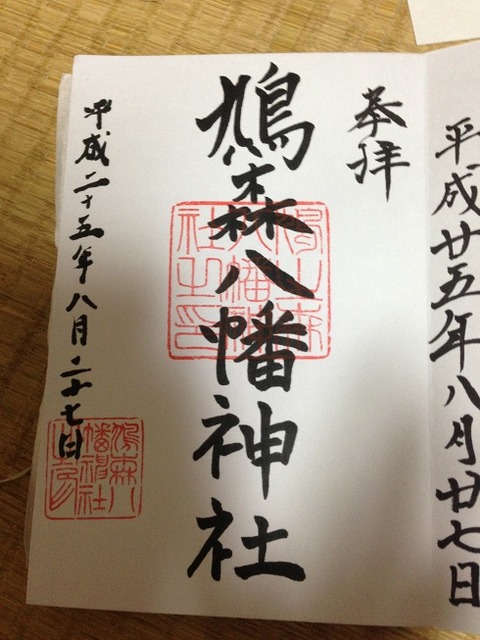 平成廿五年八月廿七日
奉拝
鳩森八幡神社
平成二十五年八月二十七日
鳩森八
幡神社
之印